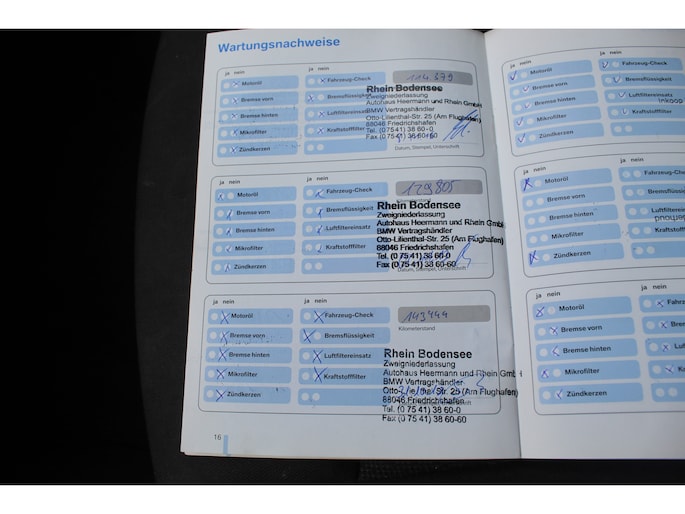 Wartungsnachweise
ja nein ja nein
Motoröl Fahrzeug-Check 114 879
Bremse vorn Bremsflüssigkeit
Bremse hinten Luftfiltereinsatz
Mikrofilter Kraftstofffilter
Zündkerzen
Rhein Bodensee
Zweigniederlassung
Autohaus Heermann und Rhein GmbH
BMW Vertragshändler
Otto-Lilienthal-Str. 25 (Am Flughafen)
88046 Friedrichshafen
Tel. (0 75 41) 38 60-0
Fax (0 75 41) 38 60-60
Datum, Stempel, Unterschrift
ja nein ja nein
Motoröl Fahrzeug-Check 129805
Bremse vorn Bremsflüssigkeit
Bremse hinten Luftfiltereinsatz
Mikrofilter Kraftstofffilter
Zündkerzen
Rhein Bodensee
Zweigniederlassung
Autohaus Heermann und Rhein GmbH
BMW Vertragshändler
Otto-Lilienthal-Str. 25 (Am Flughafen)
88046 Friedrichshafen
Tel. (0 75 41) 38 60-0
Fax (0 75 41) 38 60-60
Datum, Stempel, Unterschrift
ja nein ja nein
Motoröl Fahrzeug-Check 143444
Bremse vorn Bremsflüssigkeit Kilometerstand
Bremse hinten Luftfiltereinsatz
Mikrofilter Kraftstofffilter
Zündkerzen
Rhein Bodensee
Zweigniederlassung
Autohaus Heermann und Rhein GmbH
BMW Vertragshändler
88046 Friedrichshafen
Tel. (0 75 41) 38 60-0
Fax (0 75 41) 38 60-60
16
ja nein ja nein
Motoröl Fahrzeug-Check
Bremse vorn Bremsflüssigkeit
Bremse hinten Luftfiltereinsatz
Mikrofilter Kraftstofffilter
Zündkerzen
ja nein ja nein
Motoröl
Bremse vorn
Bremse hinten
Mikrofilter
Zündkerzen
ja nein ja nein
Motoröl
Bremse vorn
Bremse hinten
Mikrofilter
Zündkerzen